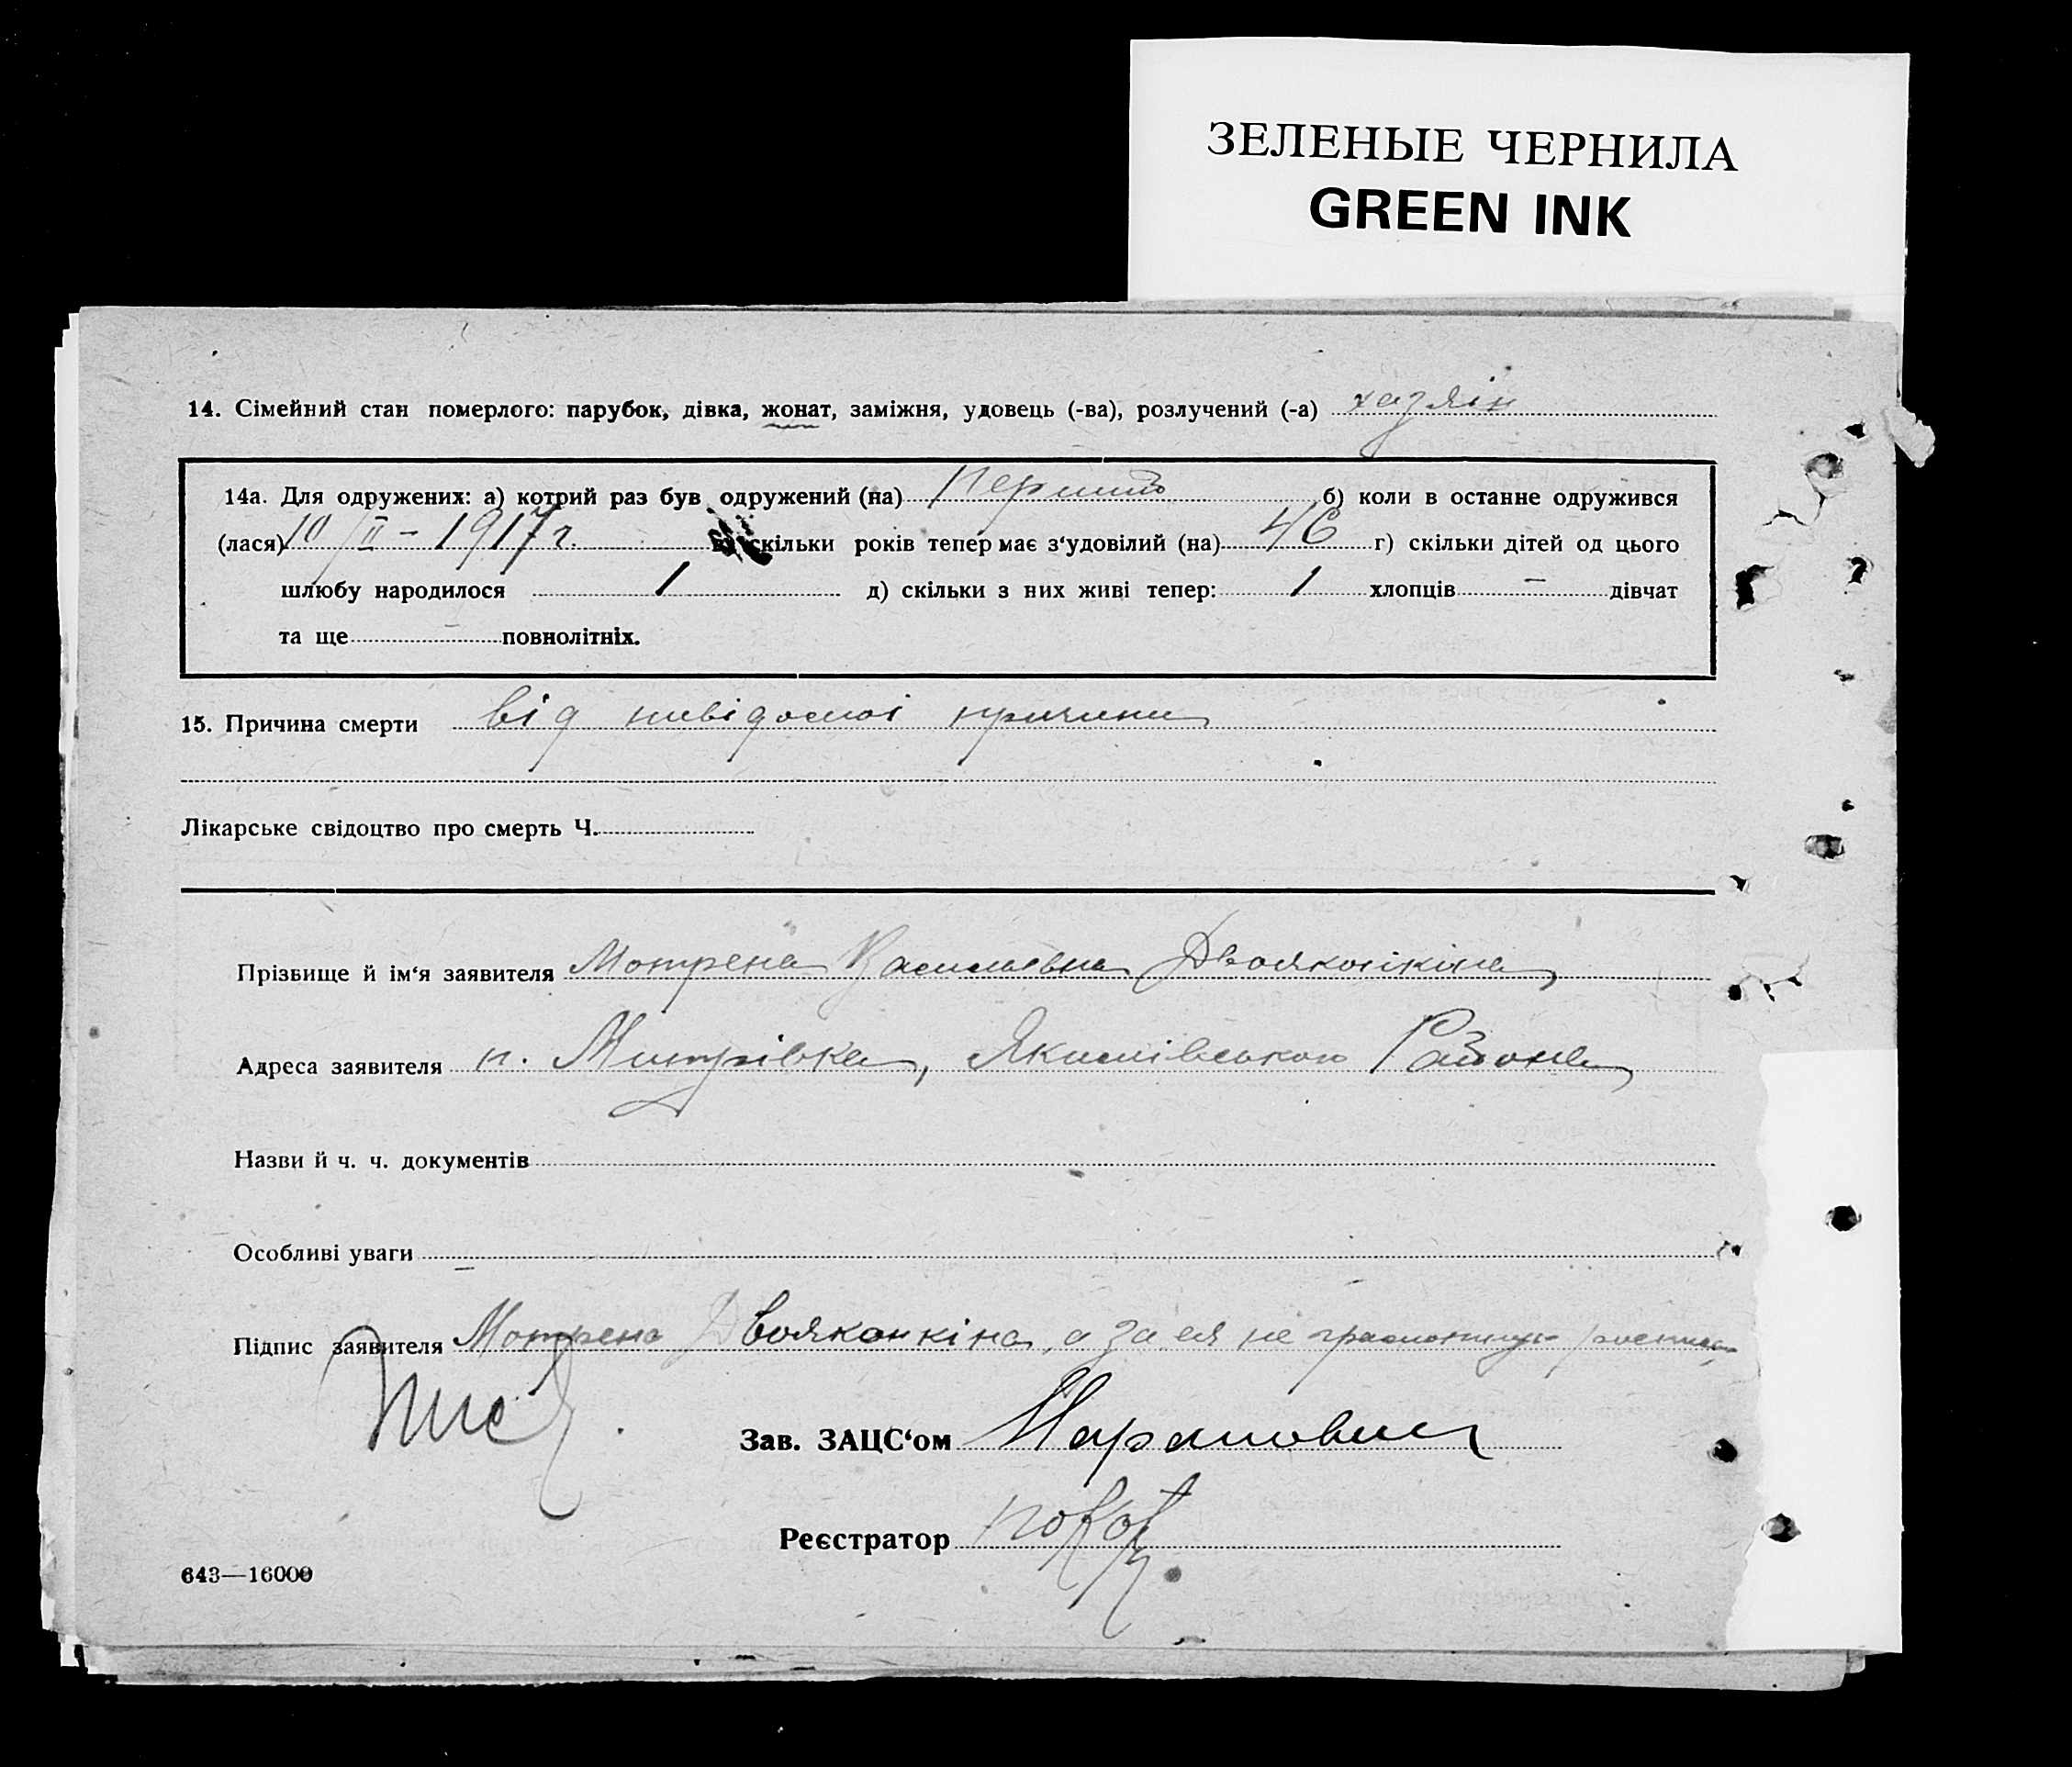 ЗЕЛЕНЫЕ ЧЕРНИЛА
GREEN INK
14. Сімейний стан померлого: парубок, дівка, жонат, заміжня, удовець (-ва), розлучений (-а) хазяін
14а. Для одружених: а) котрий раз був одружений (на) перший б) коли в останне одружився
(лася) 10/II – 1917 г. в) скільки років тепер має з‘удовілий (на) 46 г) скільки дітей од цього
шлюбу народилося 1 д) скільки з них живі тепер: 1 хлопців – дівчат
та ще – повнолітніх.
15. Причина смерти від невідомоі причини
Лікарське свідоцтво про смерть Ч.
Прізвище й ім‘я заявителя Мотрена Василівна Двояконкіна
Адреса заявителя п. Митрівка, Якимівського Района
Назви й ч. ч. документів
Особливі уваги –
Підпис заявителя Мотрена Двояконкіна, а за ея не грамотную
Зав. ЗАЦС‘ом
Реєстратор
643—16000